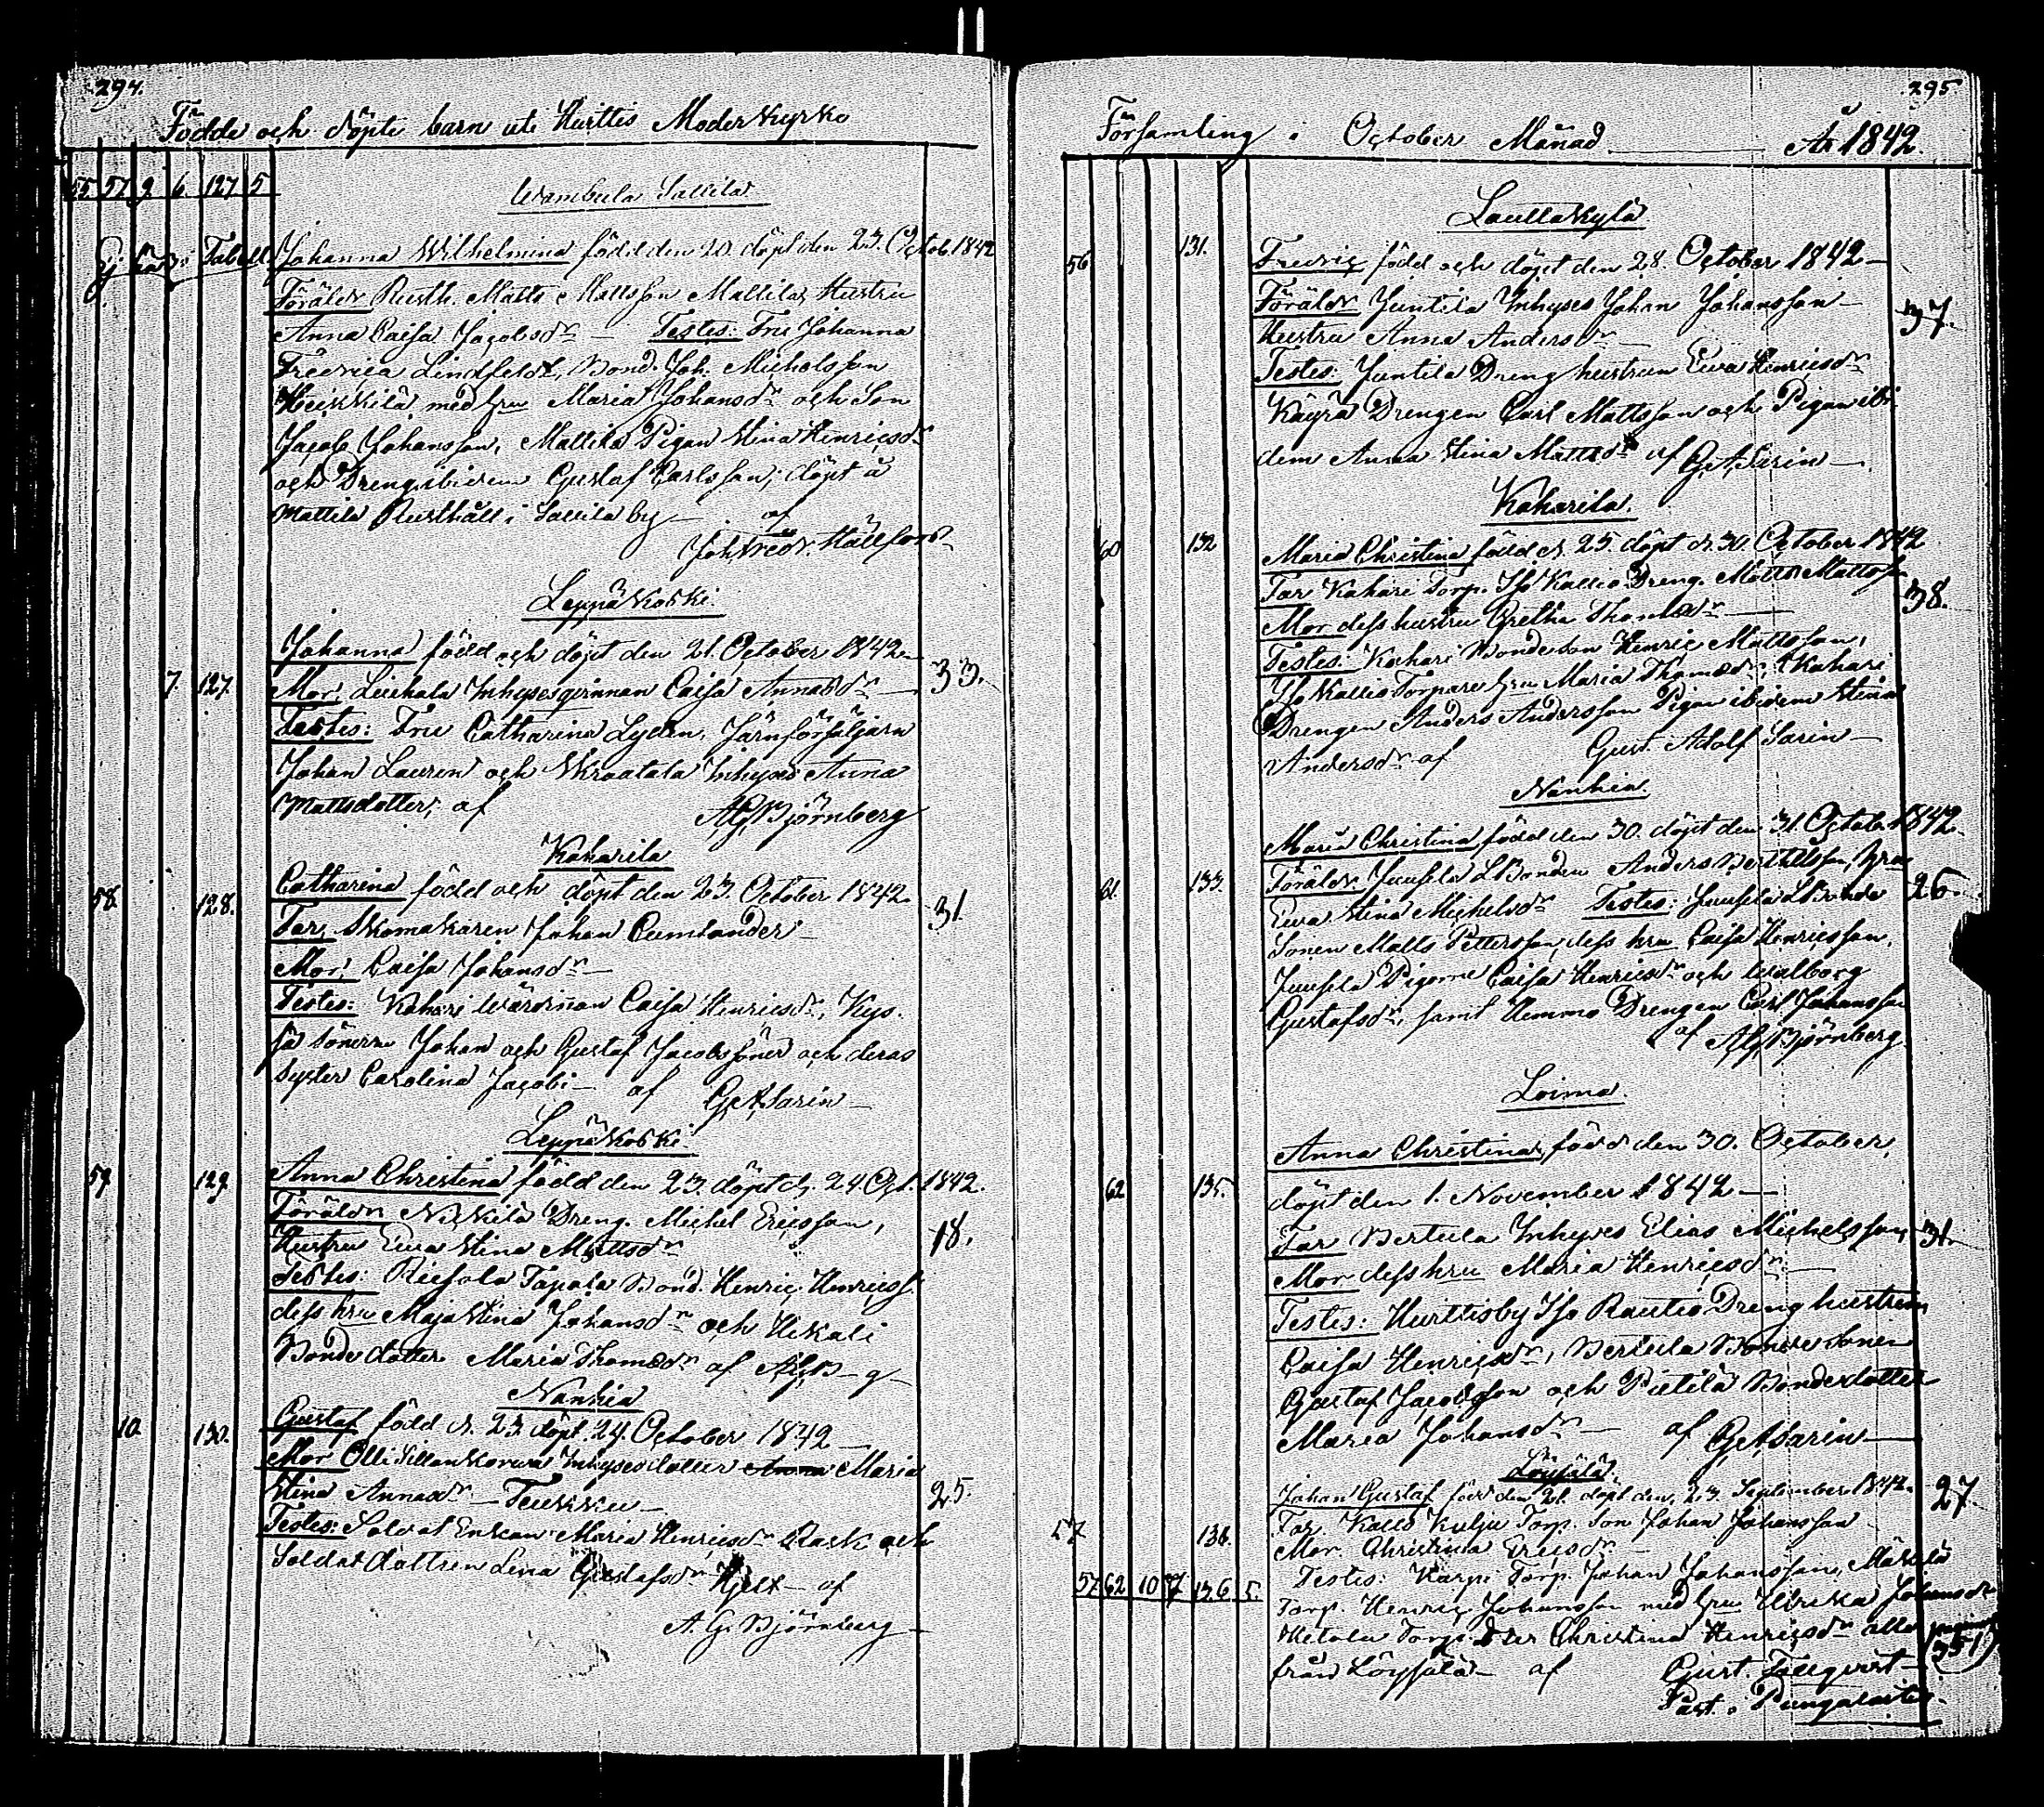 294.
Födde och döpte barn uti Hvittis Moderkyrko
55. 57. 9. 6. 127. 5
Wambula Sallila
Ej här i Tabell. Johanna Wilhelmina född den 20. döpt den 23. Octob. 1842
Föräldr Rusth. Matts Mattsson Mattila, Hustru
Anna Caisa Jacobsdr — Testes: Fru Johanna
Fredrica Lindfeldt, Bond. Joh. Michelsson
Heikkilä med hru Maria Johansdr och Son
Jacob Johansson, Mattila Pigan Stina Henricsdr
och Dreng ibidem Gustaf Carlsson; döpt å
Mattila Rusthåll i Sallila by — af
Joh. Fredr. Hällfors
Leppäkoski
Johanna född och döpt den 21. October 1842 —
7. 127. Mor, Liuhala Inhysesqvinnan Caisa Annasdr — 33.
Testes: Fru Catharina Lydén, Järnförsäljarn
Johan Lauren och Skraatala Inhyses Anna
Mattsdotter, af AG Björnberg
Kaharila
58. 128. Catharina född och döpt den 23. October 1842. 31.
Far, Skomakaren Johan Cumlander —
Mor, Caisa Johansdr —
Testes: Kahari Wärdinnan Caisa Henricsdr, Kys-
sä Sönerne Johan och Gustaf Jacobssöner och deras
Syster Carolina Jacobi — af G A Sarin —
Leppäkoski
59. 129. Anna Christina född den 23. döpt d. 24 Oct. 1842.
Föräldr Nickilä Dreng. Michel Ericsson, 18.
Hustru Ewa Stina Mattsdr
Testes: Riesola Tapala Bond. Henric Henricss.
dess hru Maja Stina Johansdr och Hikali
Bondedotter Maria Thomædr af AGB—g—
Nanhia
10. 130. Gustaf född d. 23. döpt. 24. October 1842 —
Mor Olli Sillankorwa Inhysesdotter Anna Maria
Stina Annasdr — Teukku — 25.
Testes: Soldat Enkan Maria Henricsdr Rask och
Soldat dottren Lena Gustafsdr Hjelt — af
A. G. Björnberg —
295
Församling i October Månad År 1842.
Lauttakylä
56 131. Fredric född och döpt den 28. October 1842 —
Föräldr Juntila Inhyses Johan Johansson — 37.
Hustru Anna Andersdr —
Testes: Juntila Dreng hustrun Ewa Henricsdr
Käyrä Drengen Carl Mattsson och Pigan ibi-
dem Anna Stina Mattsdr af G A Sarin —
Kaharila.
60 132 Maria Christina född d. 25. döpt d. 30. October 1842
Far Kahari Torp. Iso Kallio Dreng. Matts Mattsson 38.
Mor dess hustru Gretha Thomædr —
Testes: Kahari Bondeson Henric Mattsson,
Iso Kallio Torpare hru Maria Thomædr, Kahari
Drengen Anders Andersson Pigan ibidem Stina
Andersdr af Gust. Adolf Sarin —
Nanhia.
Maria Christina född den 30. döpt den 31. Octob. 1842
61. 133. Föräldr Juusela LBonden Anders Berthilsson, hru 26.
Ewa Stina Michelsdr Testes: Juusela LBonde
Sonen Matts Pettersson, dess hru Caisa Henricsson,
Juusela Pigorne Caisa Henricsdr och Walborg
Gustafsdr, samt Hemmo Drengen Carl Johansson
af AG Björnberg.
Loima
Anna Christina, född den 30. October,
62 135. döpt den 1. November 1842 —
Far Bertula Inhyses Elias Michelsson, 31.
Mor dess hru Maria Henricsdr —
Testes: Huittisby Iso Rautio Dreng hustrun
Caisa Henricsdr, Bertula Bonde Sonen
Gustaf Jacobsson och Pietilä Bondedotter
Maria Johansdr — af G A Sarin —
Löysälä.
Johan Gustaf född den 21. döpt den 23. September 1842. 27.
57 136. Far. Kallo Kulju Torp. Son Johan Johansson
Mor. Christina Ericsdr —
Testes: Karpi Torp. Johan Johansson,
57 62 10 7 136. 5. Torp. Henric Johansson med hru Ulrika Johansdr
Hetola Torp. Dtter Christina Henricsdr alla
från Löysälä — af Gust. Tallqvist — 351)
Past. i Pungalaitio.